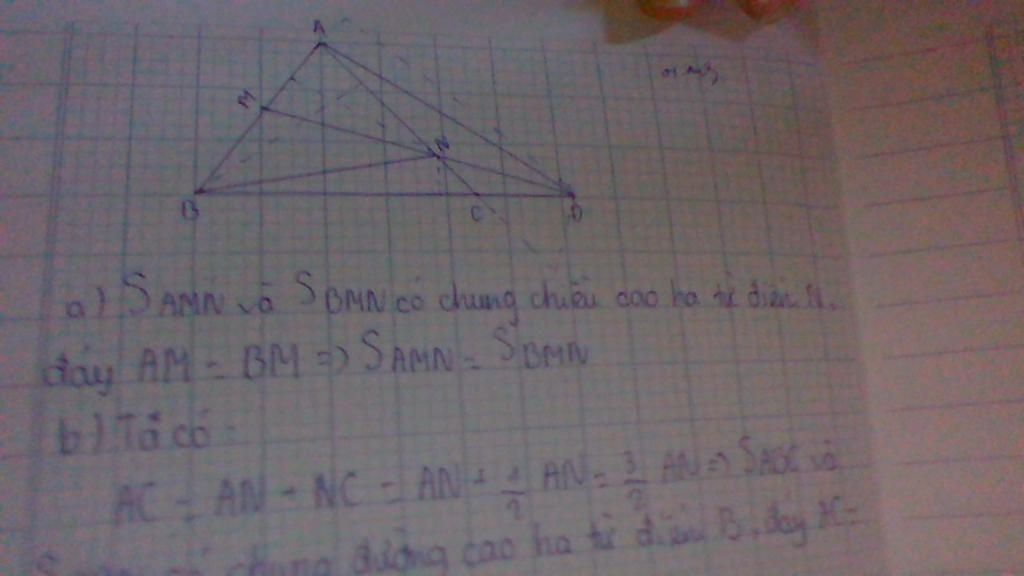 A
M
N
B
C
D
a) SAMN và SBMN có chung chiều cao hạ từ điểm N.
đáy AM = BM => SAMN = SBMN
b) Ta có:
AC = AN + NC = AN + 1/2 AN = 3/2 AN => SABC và
có chung đường cao hạ từ điểm B, đáy AC =